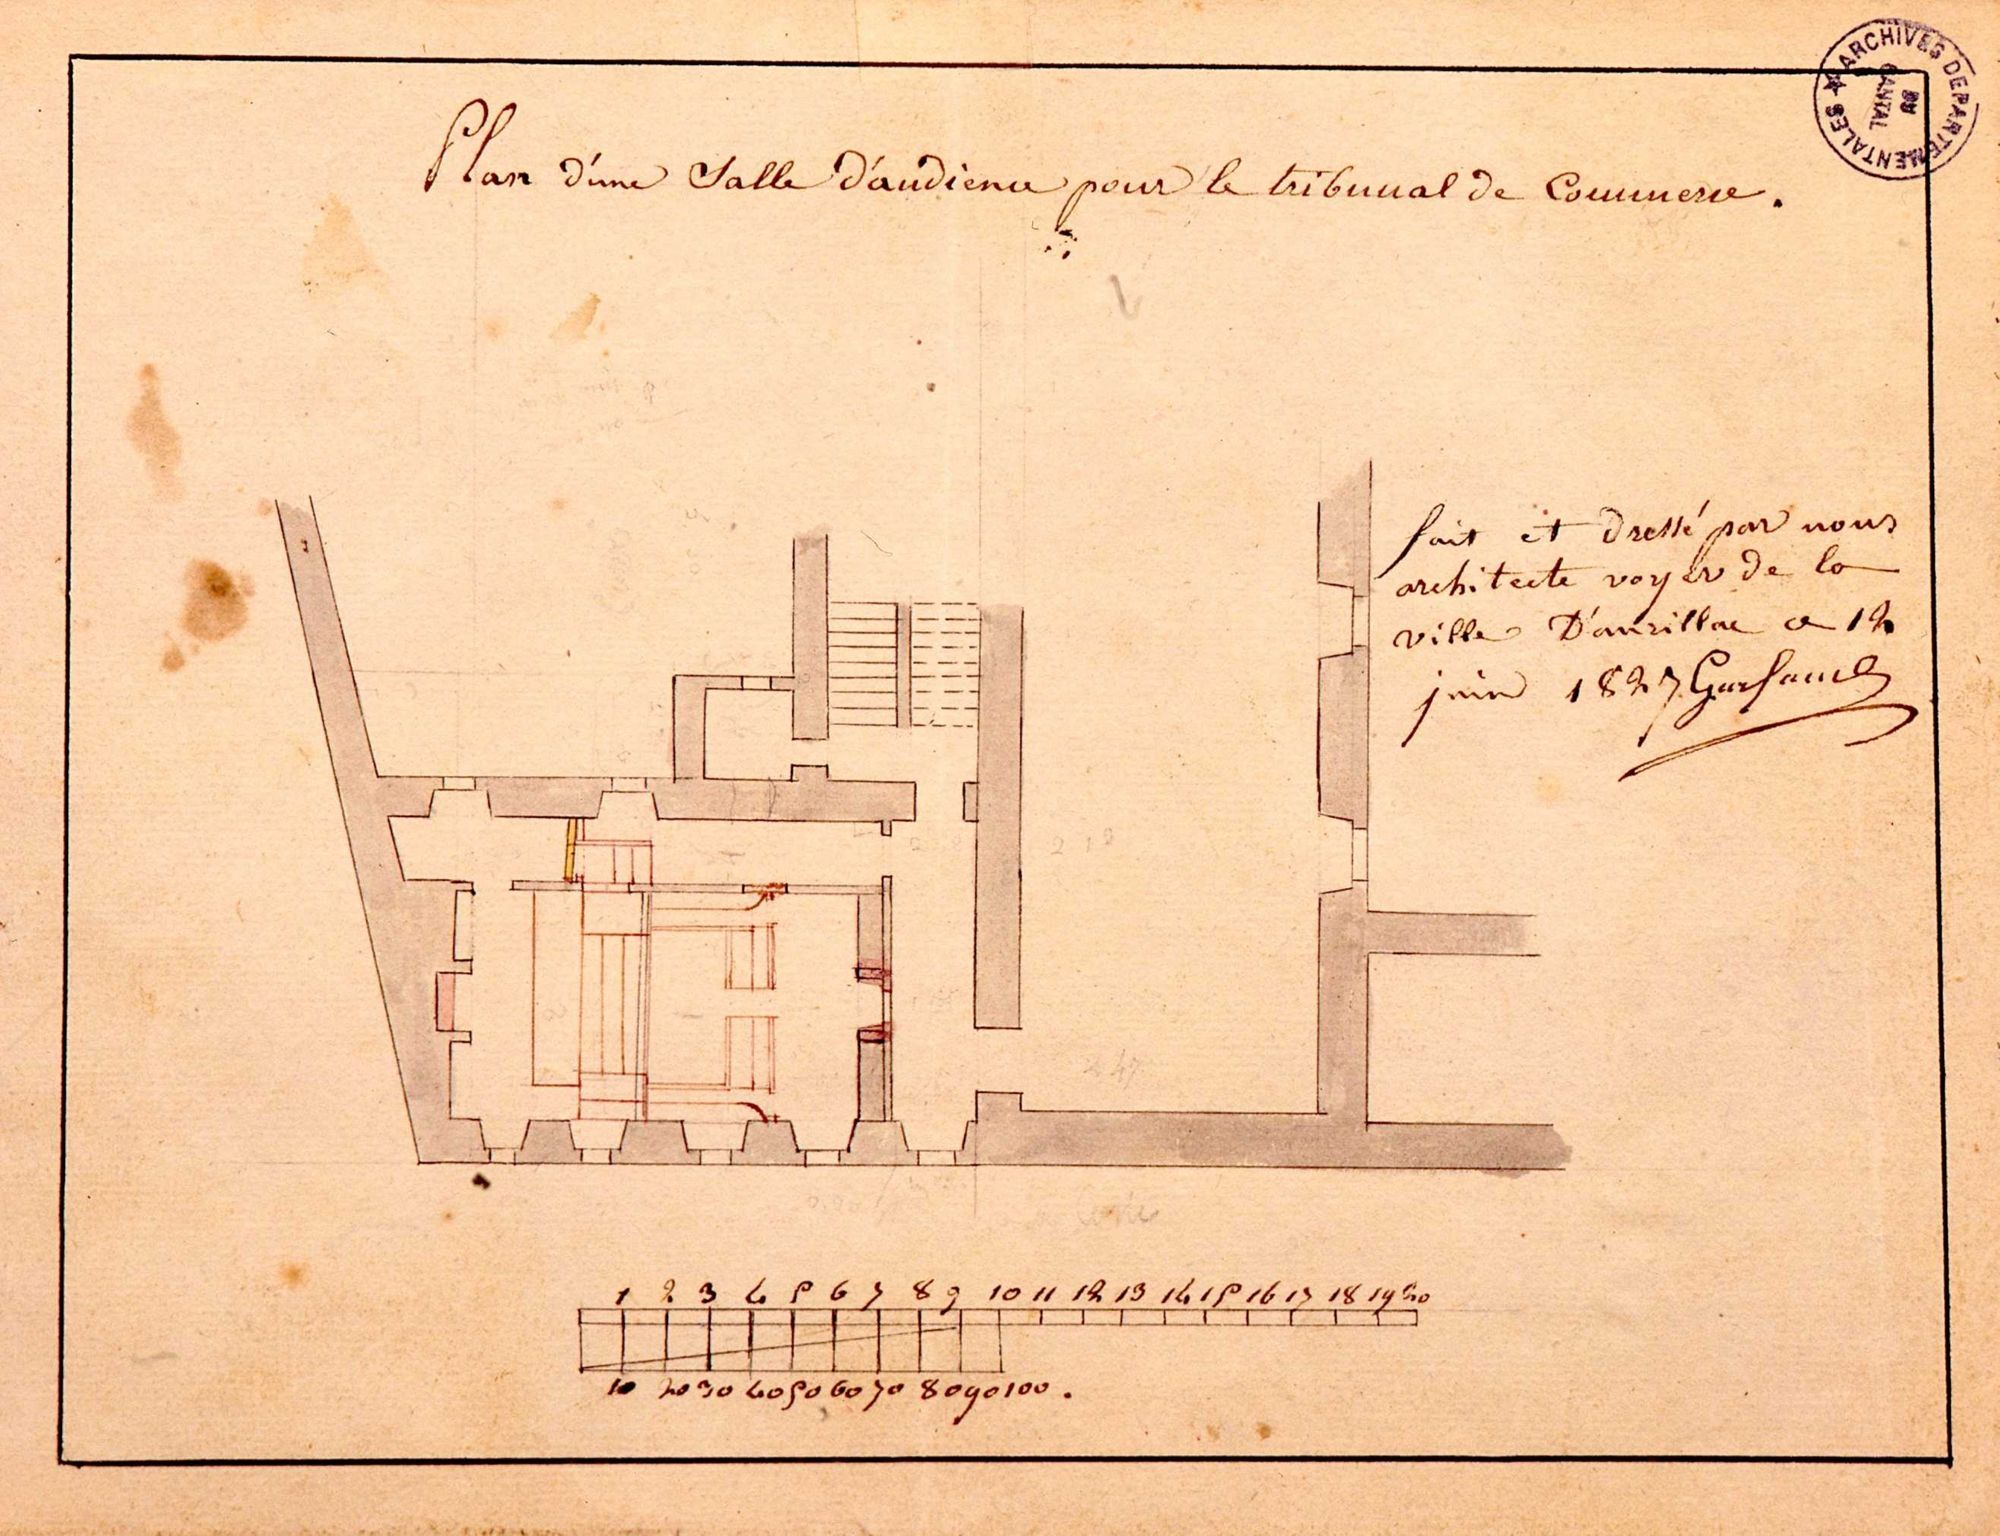 Plan d'une Salle d'audience pour le tribunal de Commerce.
ARCHIVES DEPARTEMENTALES
DU
CANTAL
fait et dressé par nous
architecte voyer de la
ville D'aurillac ce 12
juin 1827
1 2 3 4 5 6 7 8 9 10 11 12 13 14 15 16 17 18 19 20
10 20 30 40 50 60 70 80 90 100.